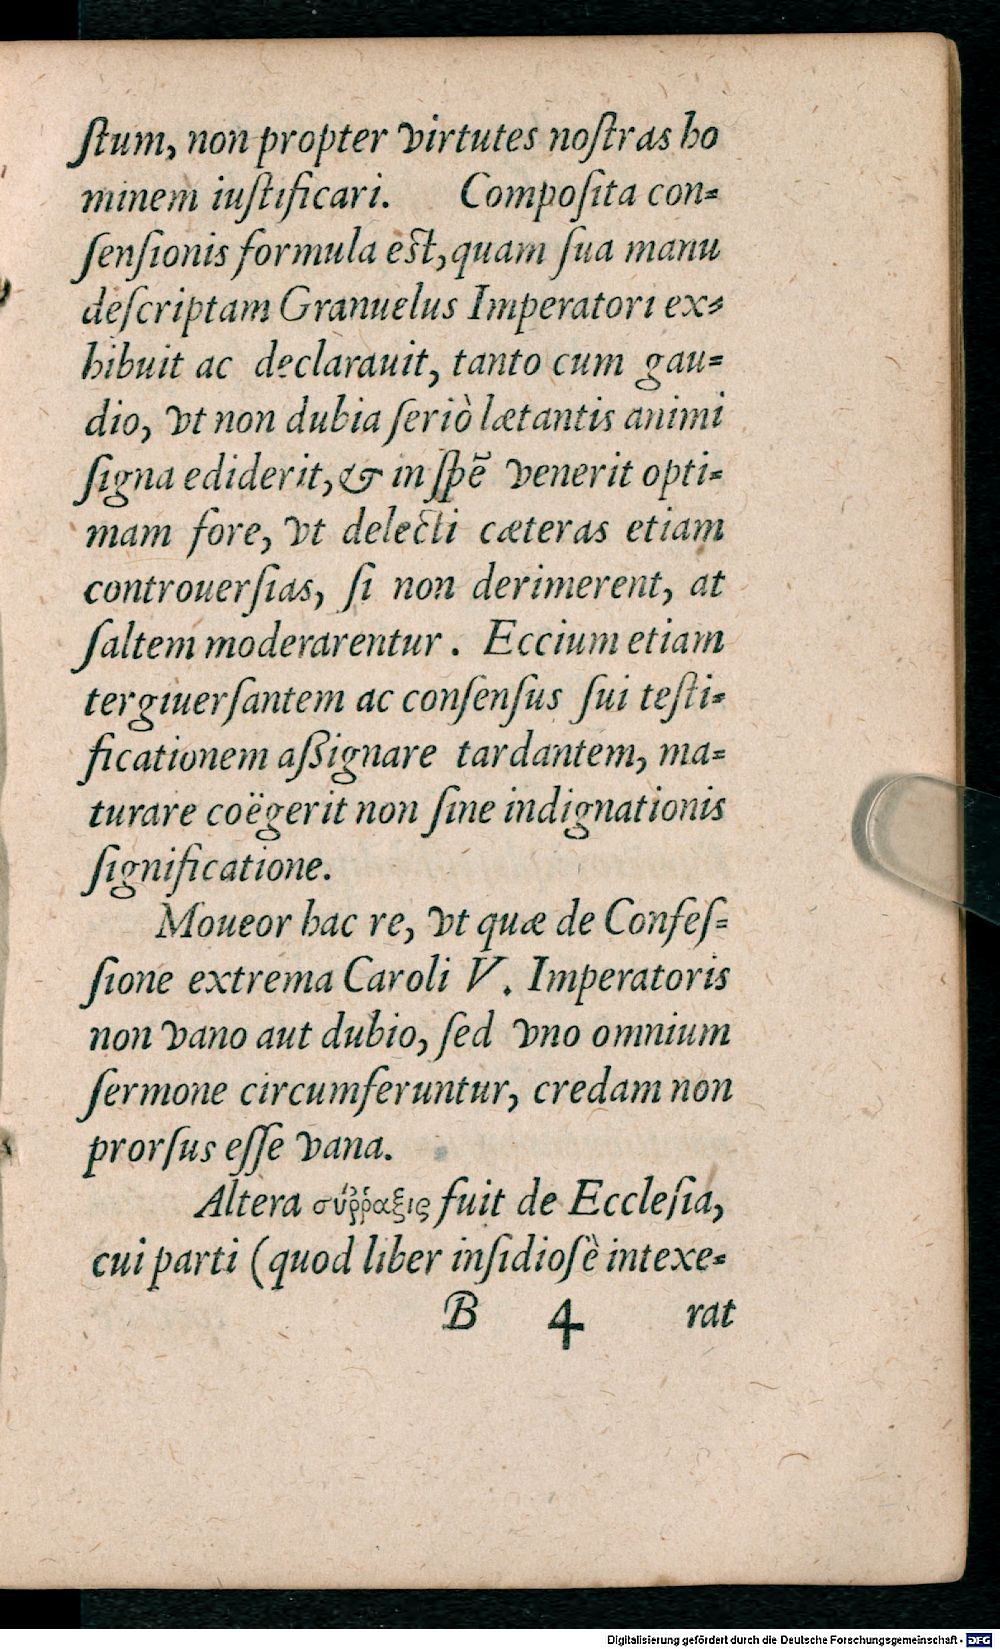 ſtum, non propter virtutes noſtras ho
minem iuſtificari. Compoſita con-
ſenſionis formula eſt, quam ſua manu
deſcriptam Granuelus Imperatori ex-
hibuit ac declarauit, tanto cum gau-
dio, vt non dubia ſeriò lætantis animi
ſigna ediderit, & in ſpē venerit opti-
mam fore, vt delecti cæteras etiam
controuerſias, ſi non derimerent, at
ſaltem moderarentur. Eccium etiam
tergiuerſantem ac conſenſus ſui teſti-
ficationem aßignare tardantem, ma-
turare coëgerit non ſine indignationis
ſignificatione.
Moueor hac re, vt quæ de Confeſ-
ſione extrema Caroli V. Imperatoris
non vano aut dubio, ſed vno omnium
ſermone circumferuntur, credam non
prorſus eſſe vana.
Altera σύῤῥαξις fuit de Eccleſia,
cui parti (quod liber inſidioſè intexe-
B 4 rat
Digitalisierung gefördert durch die Deutsche Forschungsgemeinschaft - DFG